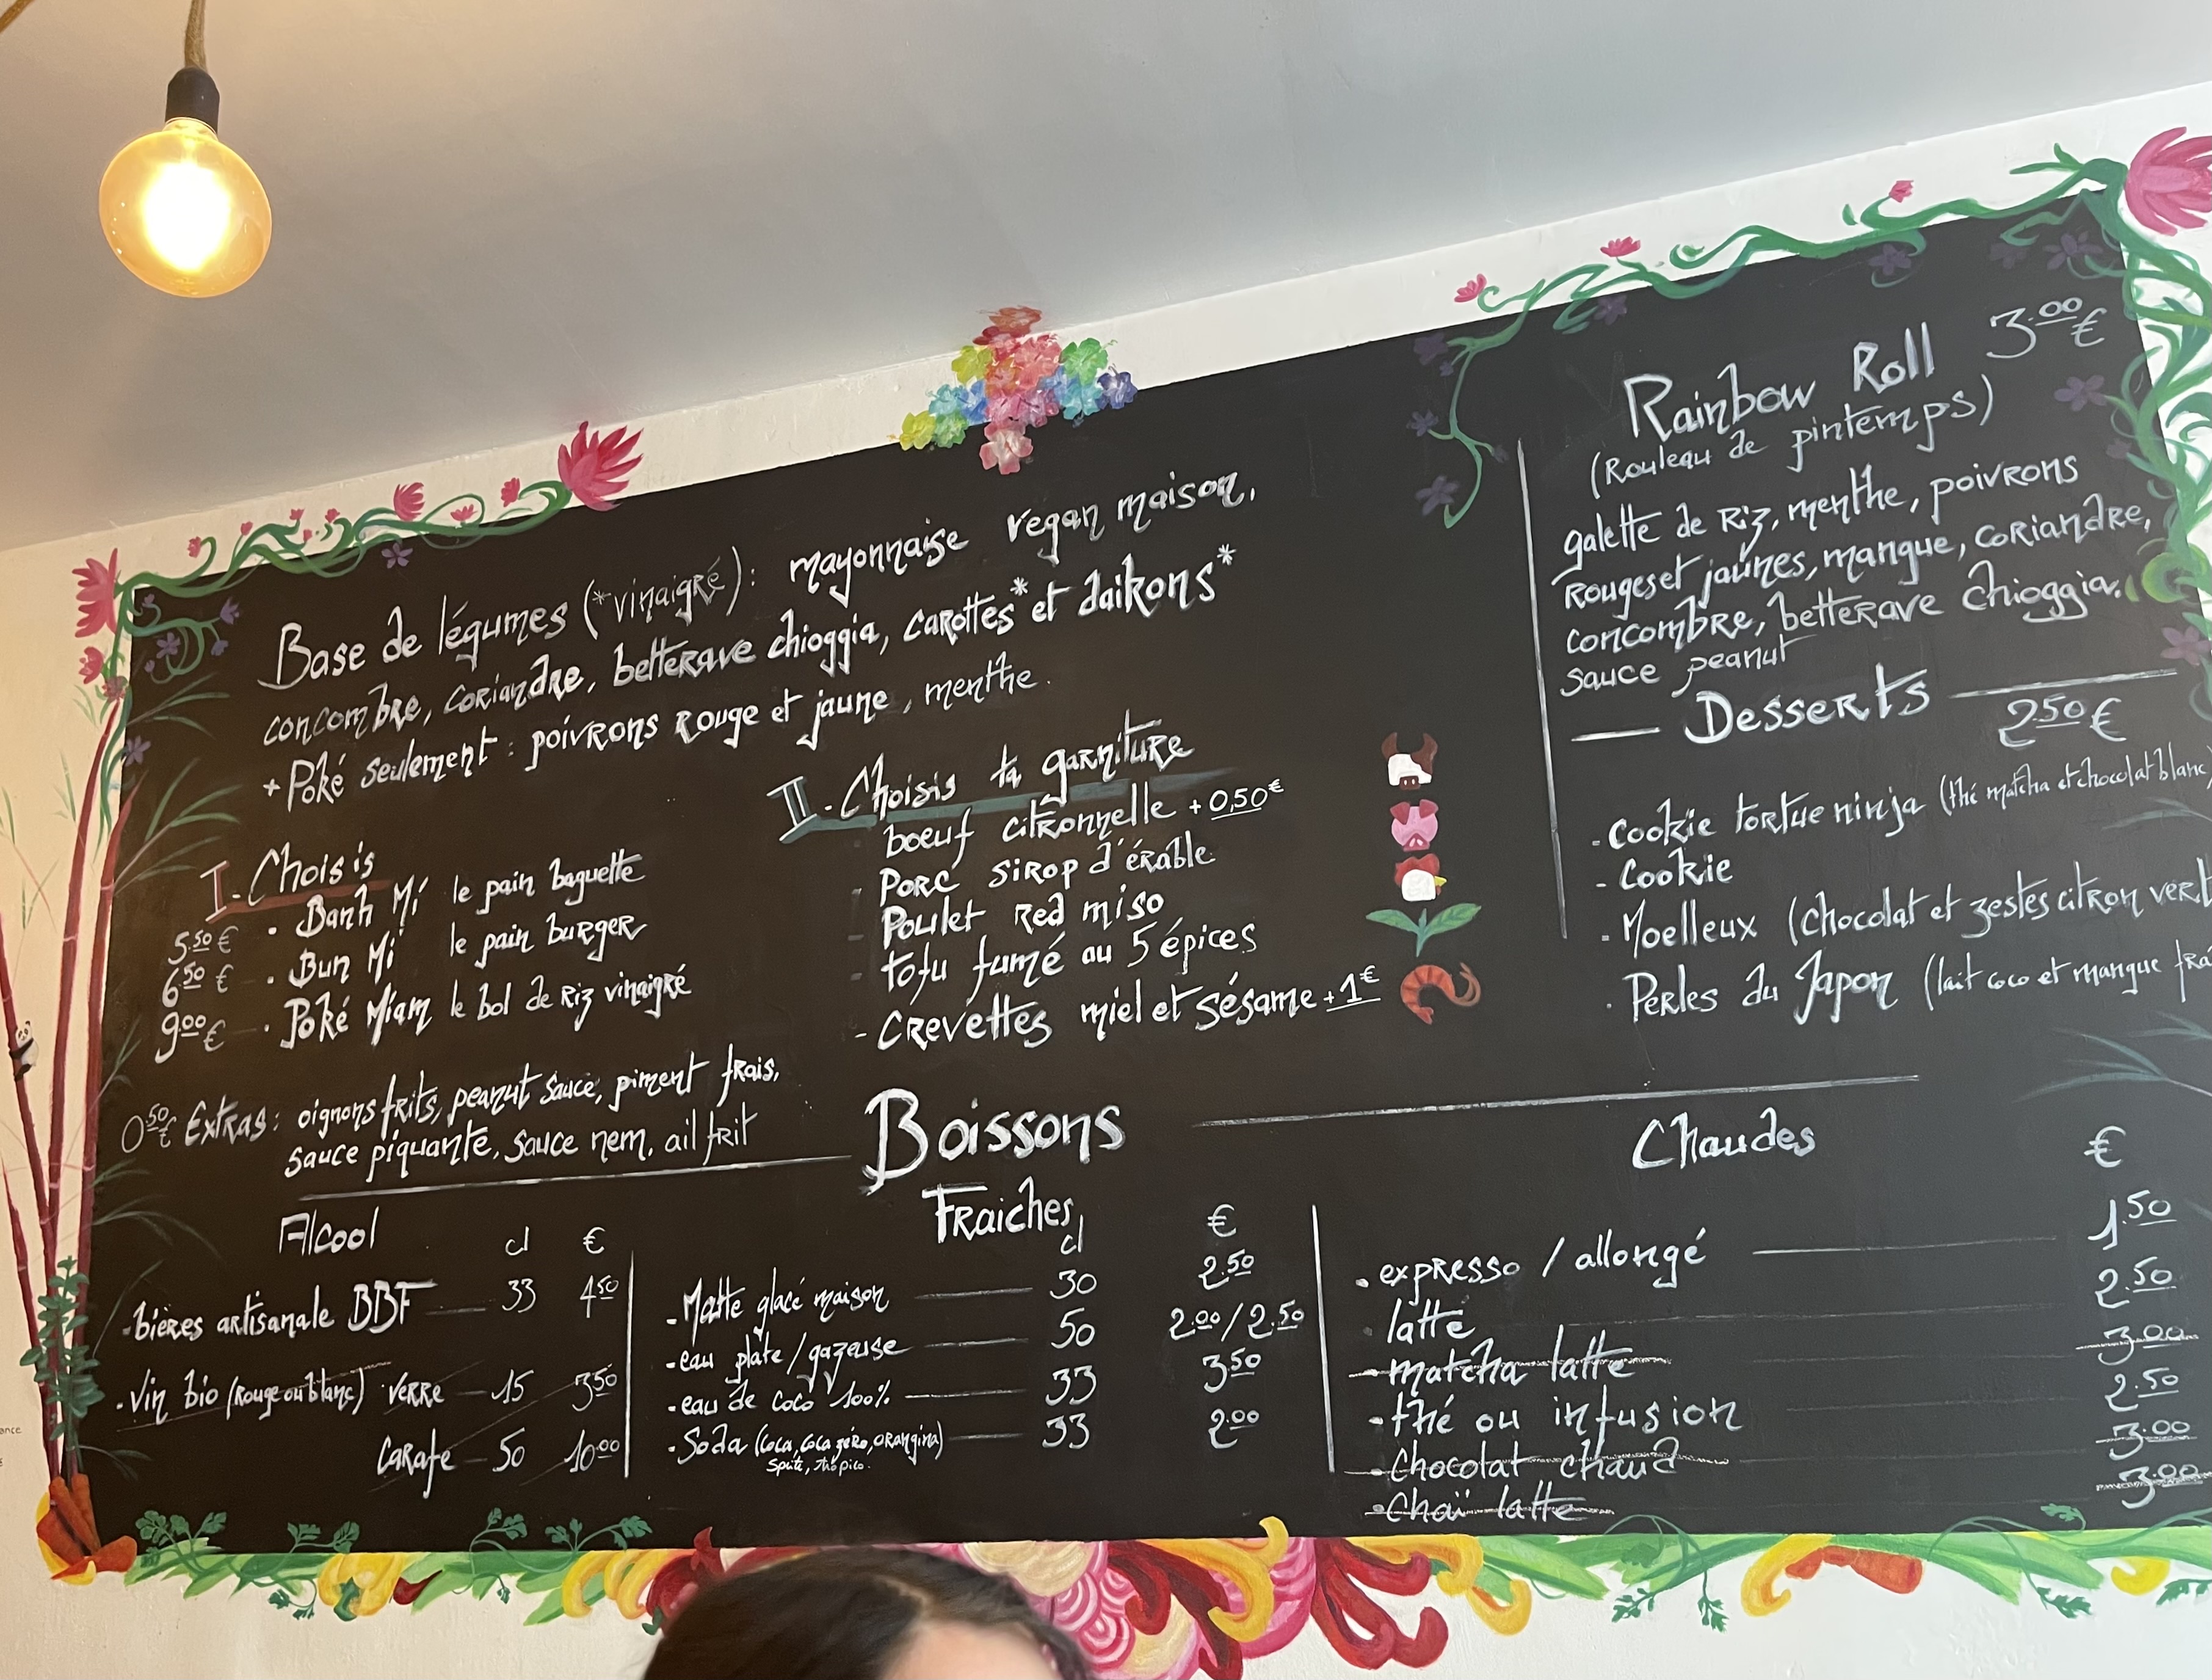 Base de légumes (*vinaigré): mayonnaise vegan maison,
concombre, coriandre, betterave chioggia, carottes* et daikons*
+ Poké seulement : poivrons rouge et jaune, menthe.
I - Choisis
5.50 € · Banh Mi le pain baguette
6.50 € · Bun Mi le pain burger
9.00 € · Poké Miam le bol de riz vinaigré
0.50 € Extras: oignons frits, peanut sauce, piment frais,
sauce piquante, sauce nem, ail frit
II - Choisis ta garniture
boeuf citronnelle + 0,50€
- Porc sirop d'érable
- Poulet Red miso
- tofu fumé au 5 épices
- Crevettes miel et sésame + 1€
Rainbow Roll 3.00 €
(Rouleau de pintemps)
galette de Riz, menthe, poivrons
rouges et jaunes, mangue, coriandre,
concombre, betterave chioggia,
sauce peanut
Desserts
2.50 €
- Cookie tortue ninja (thé matcha et chocolat blanc)
- Cookie
· Moelleux (chocolat et zestes citron vert
· Perles du Japon (lait coco et mangue
Boissons
Alcool cl €
· bières artisanale BBF 33 4.50
· Vin bio (rouge ou blanc) verre 15 3.50
carafe 50 10.00
Fraiches cl €
· Matte glacé maison 30 2.50
· eau plate / gazeuse 50 2.00/2.50
· eau de coco 100% 33 3.50
· Soda (coca, coca zéro, orangina) 33 2.00
Sprite, tropico.
Chaudes €
· expresso / allongé 1.50
· latte 2.50
· matcha latte 3.00
· thé ou infusion 2.50
· chocolat chaud 3.00
· chaï latte 3.00